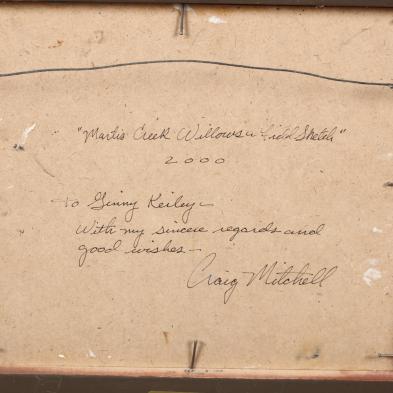 "Martis Creek Willows a Field Sketch"
2000
To Ginny Keiley -
With my sincere regards and
good wishes -
Craig Mitchell